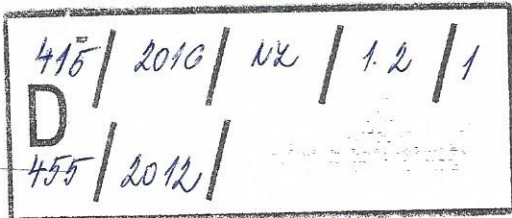 415/2016/NZ/1.2/1
D
455/2012/